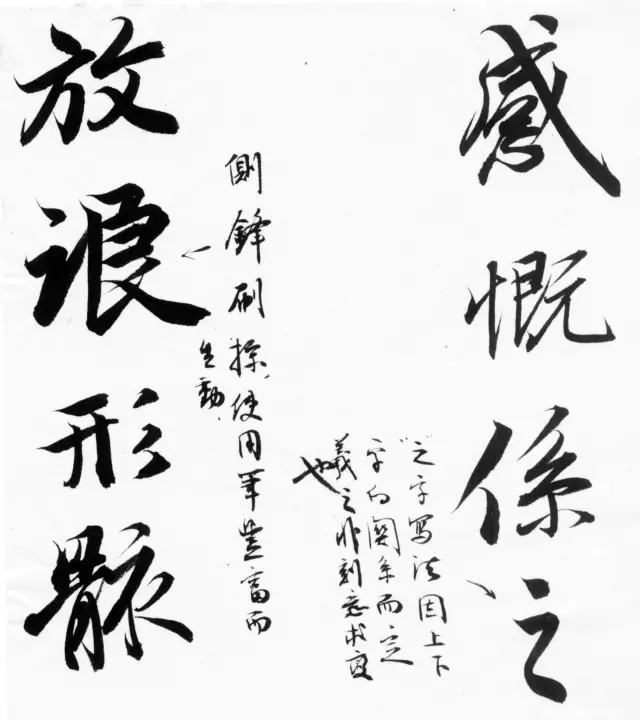 感慨係之
"之"字寫法因上下
字的関系而定
羲之非刻意求變
也
側鋒刷掠,使用筆豐富而
生動.
放浪形骸